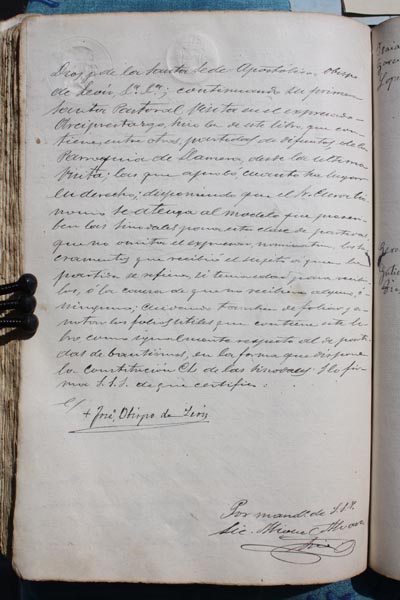 Dios y de la Santa Sede Apostólica, Obispo
de León, &; continuando su primera
Santa Pastoral Visita en el expresado
Arciprestazgo, hizo la de este libro, que con-
tiene, entre otras, partidas de difuntos de la
Parroquia de Llamera, desde la última
Visita; las que aprobó, cuanto ha lugar
en derecho; disponiendo que el Sr. Ecónomo
se atenga al modelo que prescri-
ben las Sinodales para esta clase de partidas,
que no omita el expresar nominatim los Sa-
cramentos que recibió el sujeto a quien la
partida se refiere, si tuvo edad para recibir-
los, ó la causa de que no recibiera alguno, ó
ninguno;
notar los folios útiles que contiene este li-
bro como igualmente respecto al de parti-
das de bautismos, en la forma que dispone
la constitución de las Sinodales. Y lo fir-
ma S.S.I. de que certifico:
+ José, Obispo de León
Por mand.o de S.S.I.
Lic. Miguel